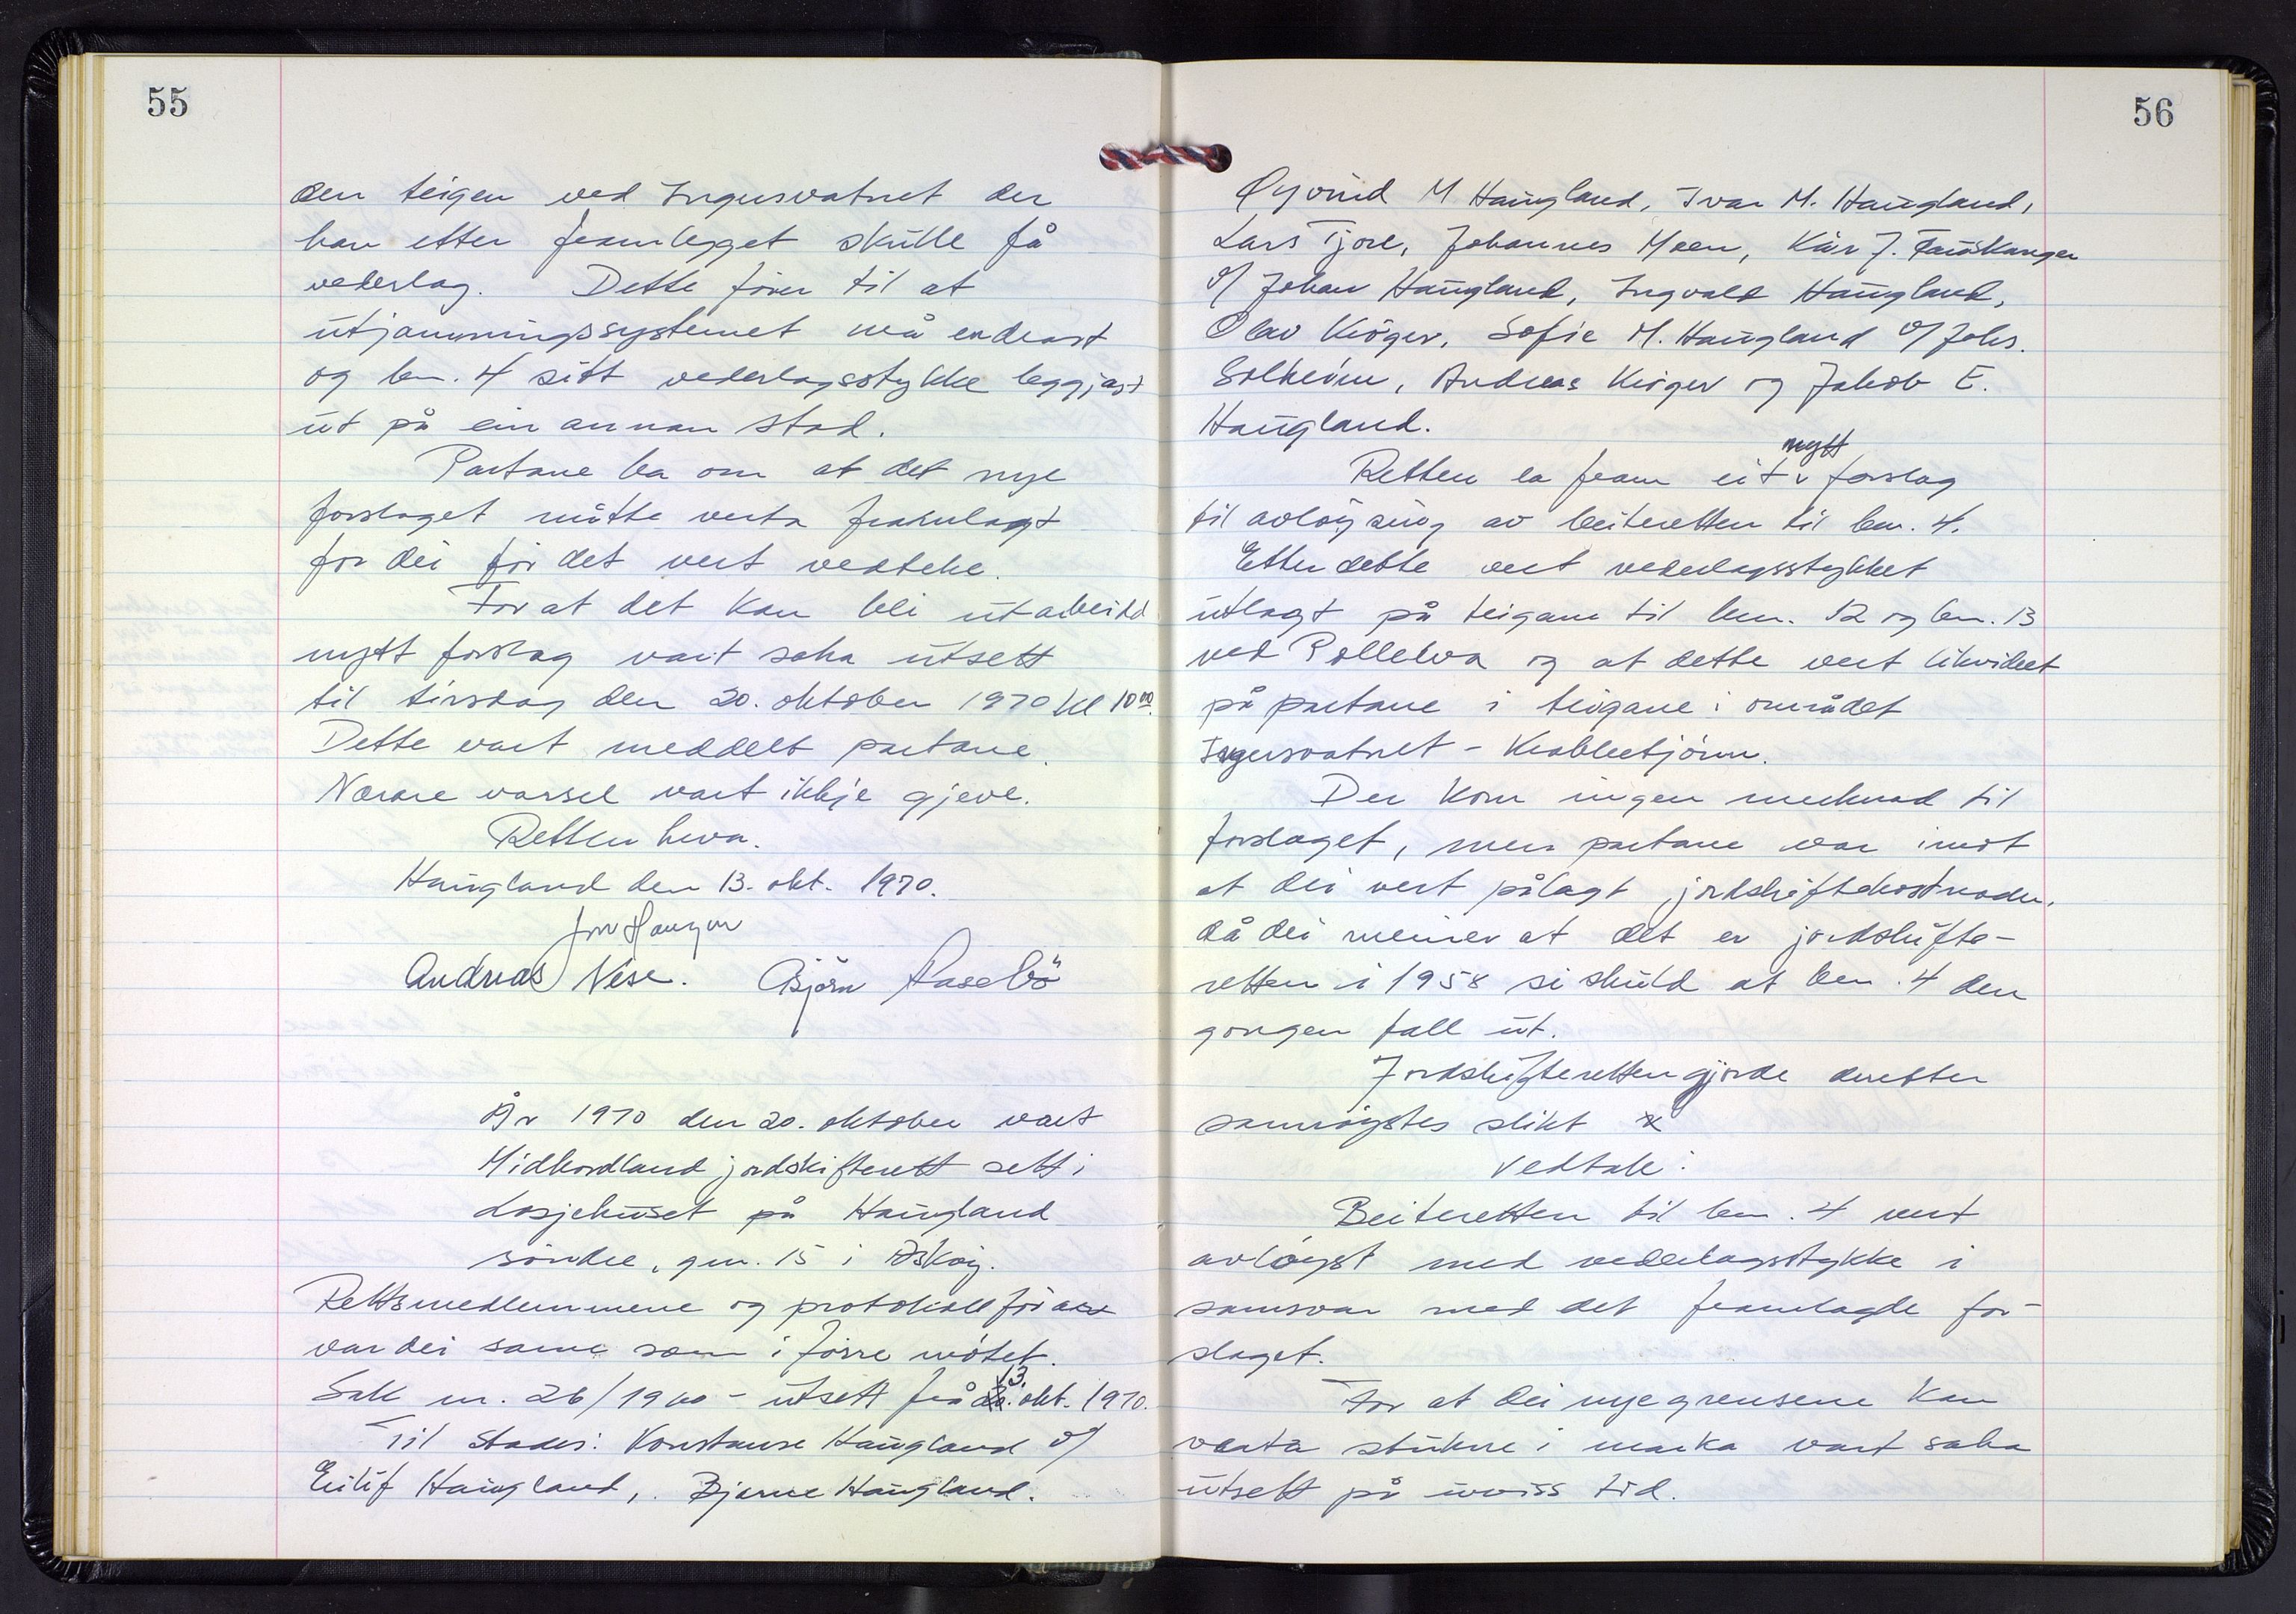 55
den teigen ved Ingersvatnet der
han etter framlegget skulle få
vederlag. Dette fører til at
utjamningssystemet må endrast
og bn. 4 sitt vederlagsstykke leggjast
ut på ein annan stad.
Partane ba om at det nye
forslaget måtte verta framlagt
for dei før det vert vedteke.
For at det kan bli utarbeidd
nytt forslag vart saka utsett
til tirsdag den 20. oktober 1970 kl 10⁰⁰.
Dette vart meddelt partane.
Nærare varsel vart ikkje gjeve.
Retten heva.
Haugland den 13. okt. 1970.
Jon Haugen
Andreas Nese. Bjørn Aasebö
År 1970 den 20. oktober vart
Midhordland jordskifterett sett i
Losjehuset på Haugland
søndre, gnr. 15 i Askøy.
Rettsmedlemmene og protokollførar
var dei same som i førre møtet.
Sak nr. 26/1960 - utsett frå 13. okt. 1970.
Til stades: Konstanse Haugland v/
Eilif Haugland, Bjarne Haugland.
56
Øyvind M. Haugland, Ivar M. Haugland,
Lars Tjore, Johannes Meen, Kår J. Fauskanger
v/ Johan Haugland, Ingvald Haugland,
Olav Krøger, Sofie M. Haugland v/ Johs.
Solheim, Andreas Krøger og Jakob E.
Haugland.
Retten la fram eit nytt forslag
til avløysing av beiteretten til bn. 4.
Etter dette vert vederlagsstykket
utlagt på teigane til bn. 12 og bn. 13
ved Pollelva og at dette vert likvidert
på partane i teigane i området
Ingersvatnet - Krabbetjørn.
Der kom ingen merknad til
forslaget, men partane var imot
at dei vert pålagt jordskiftekostnader,
då dei meiner at det er jordskifte-
retten i 1958 si skuld at bn. 4 den
gongen fall ut.
Jordskifteretten gjorde deretter
samrøystes slikt
vedtak:
Beiteretten til bn. 4 vert
avløyst med vederlagsstykke i
samsvar med det framlagde for-
slaget.
For at dei nye grensene kan
verta stukne i marka vart saka
utsett på uviss tid.